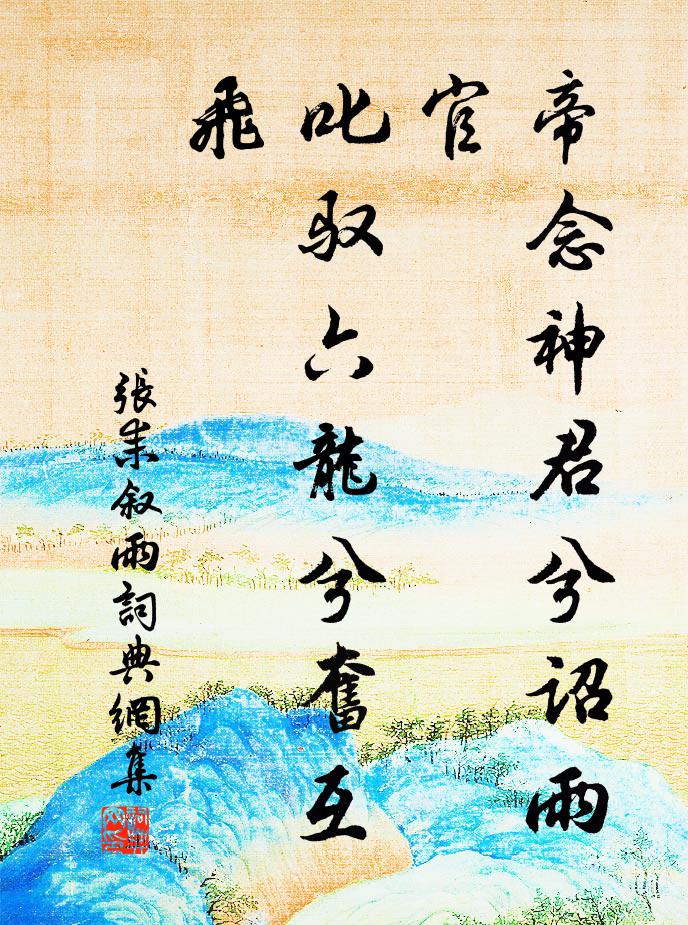 帝念神君兮詔雨
官
叱馭六龍兮奮互
飛
張耒叙雨詞典網集